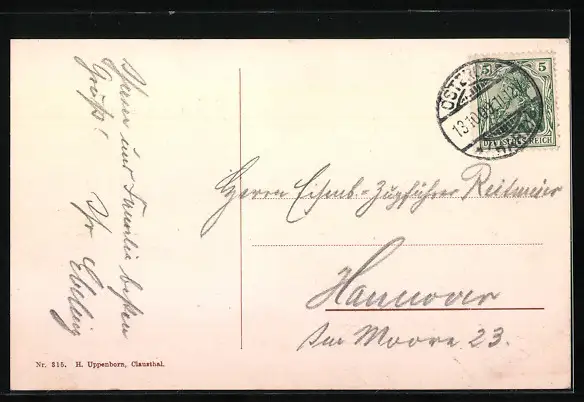 Ihnen und Familie besten
Gruß!
Ihr Ebeling
5 5
DEUTSCHES REICH
OSTERODE
13.10.09.11-12
Herrn Eisenb.-Zugführer Reitmeier
Hannover
Am Moore 23.
Nr. 315. H. Uppenborn, Clausthal.